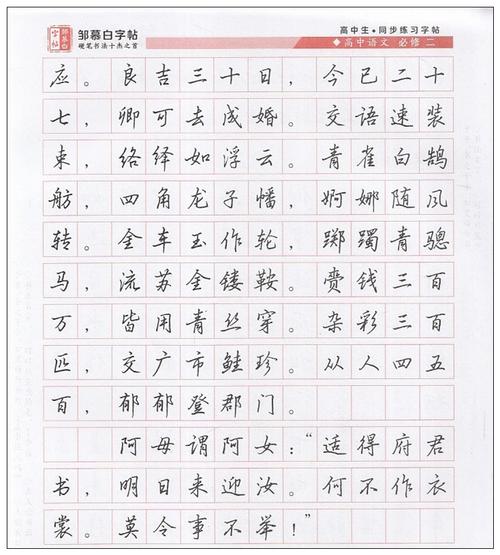 邹慕白字帖
邹慕白字帖
硬笔书法十杰之首
高中生·同步练习字帖
高中语文 必修二
应。良吉三十日，今已二十
七，卿可去成婚。交语速装
束，络绎如浮云。青雀白鹄
舫，四角龙子幡，婀娜随风
转。金车玉作轮，踯躅青骢
马，流苏金镂鞍。赍钱三百
万，皆用青丝穿。杂彩三百
匹，交广市鲑珍。从人四五
百，郁郁登郡门。
阿母谓阿女：“适得府君
书，明日来迎汝。何不作衣
裳。莫令事不举！”